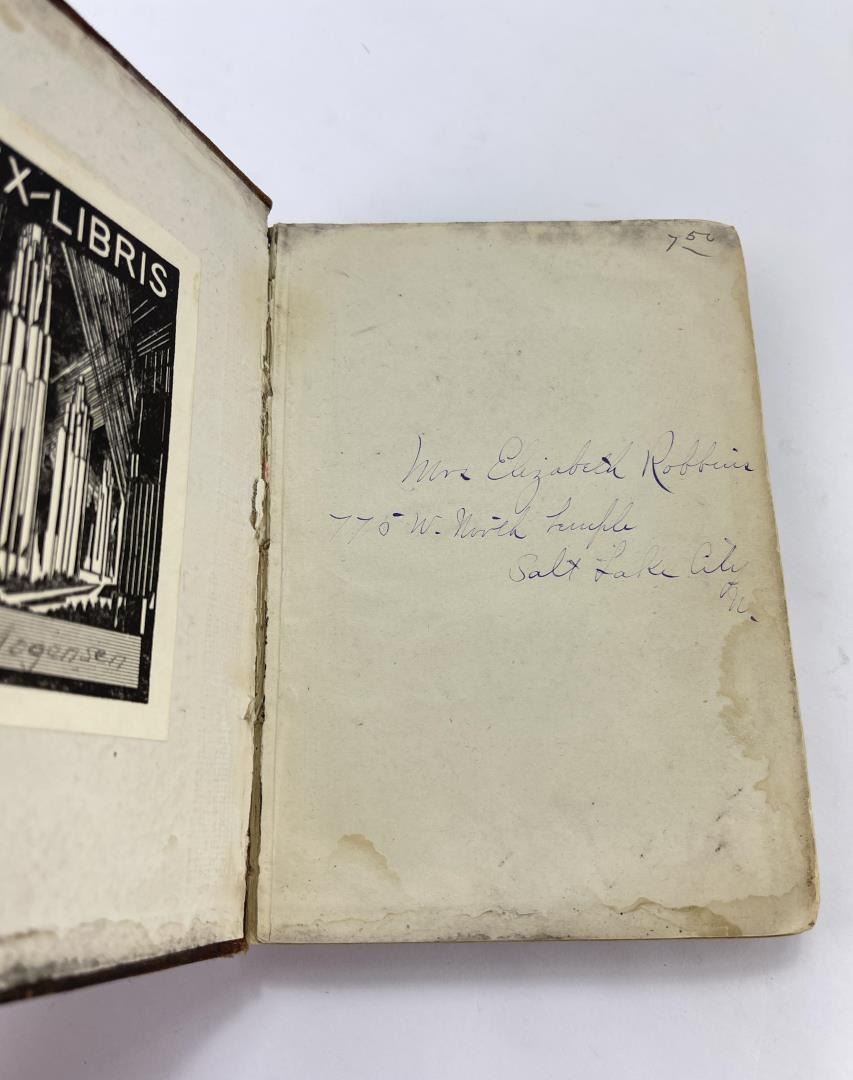 X-LIBRIS
7 50
Mrs Elizabeth Robbins
775 W. North Temple
Salt Lake City